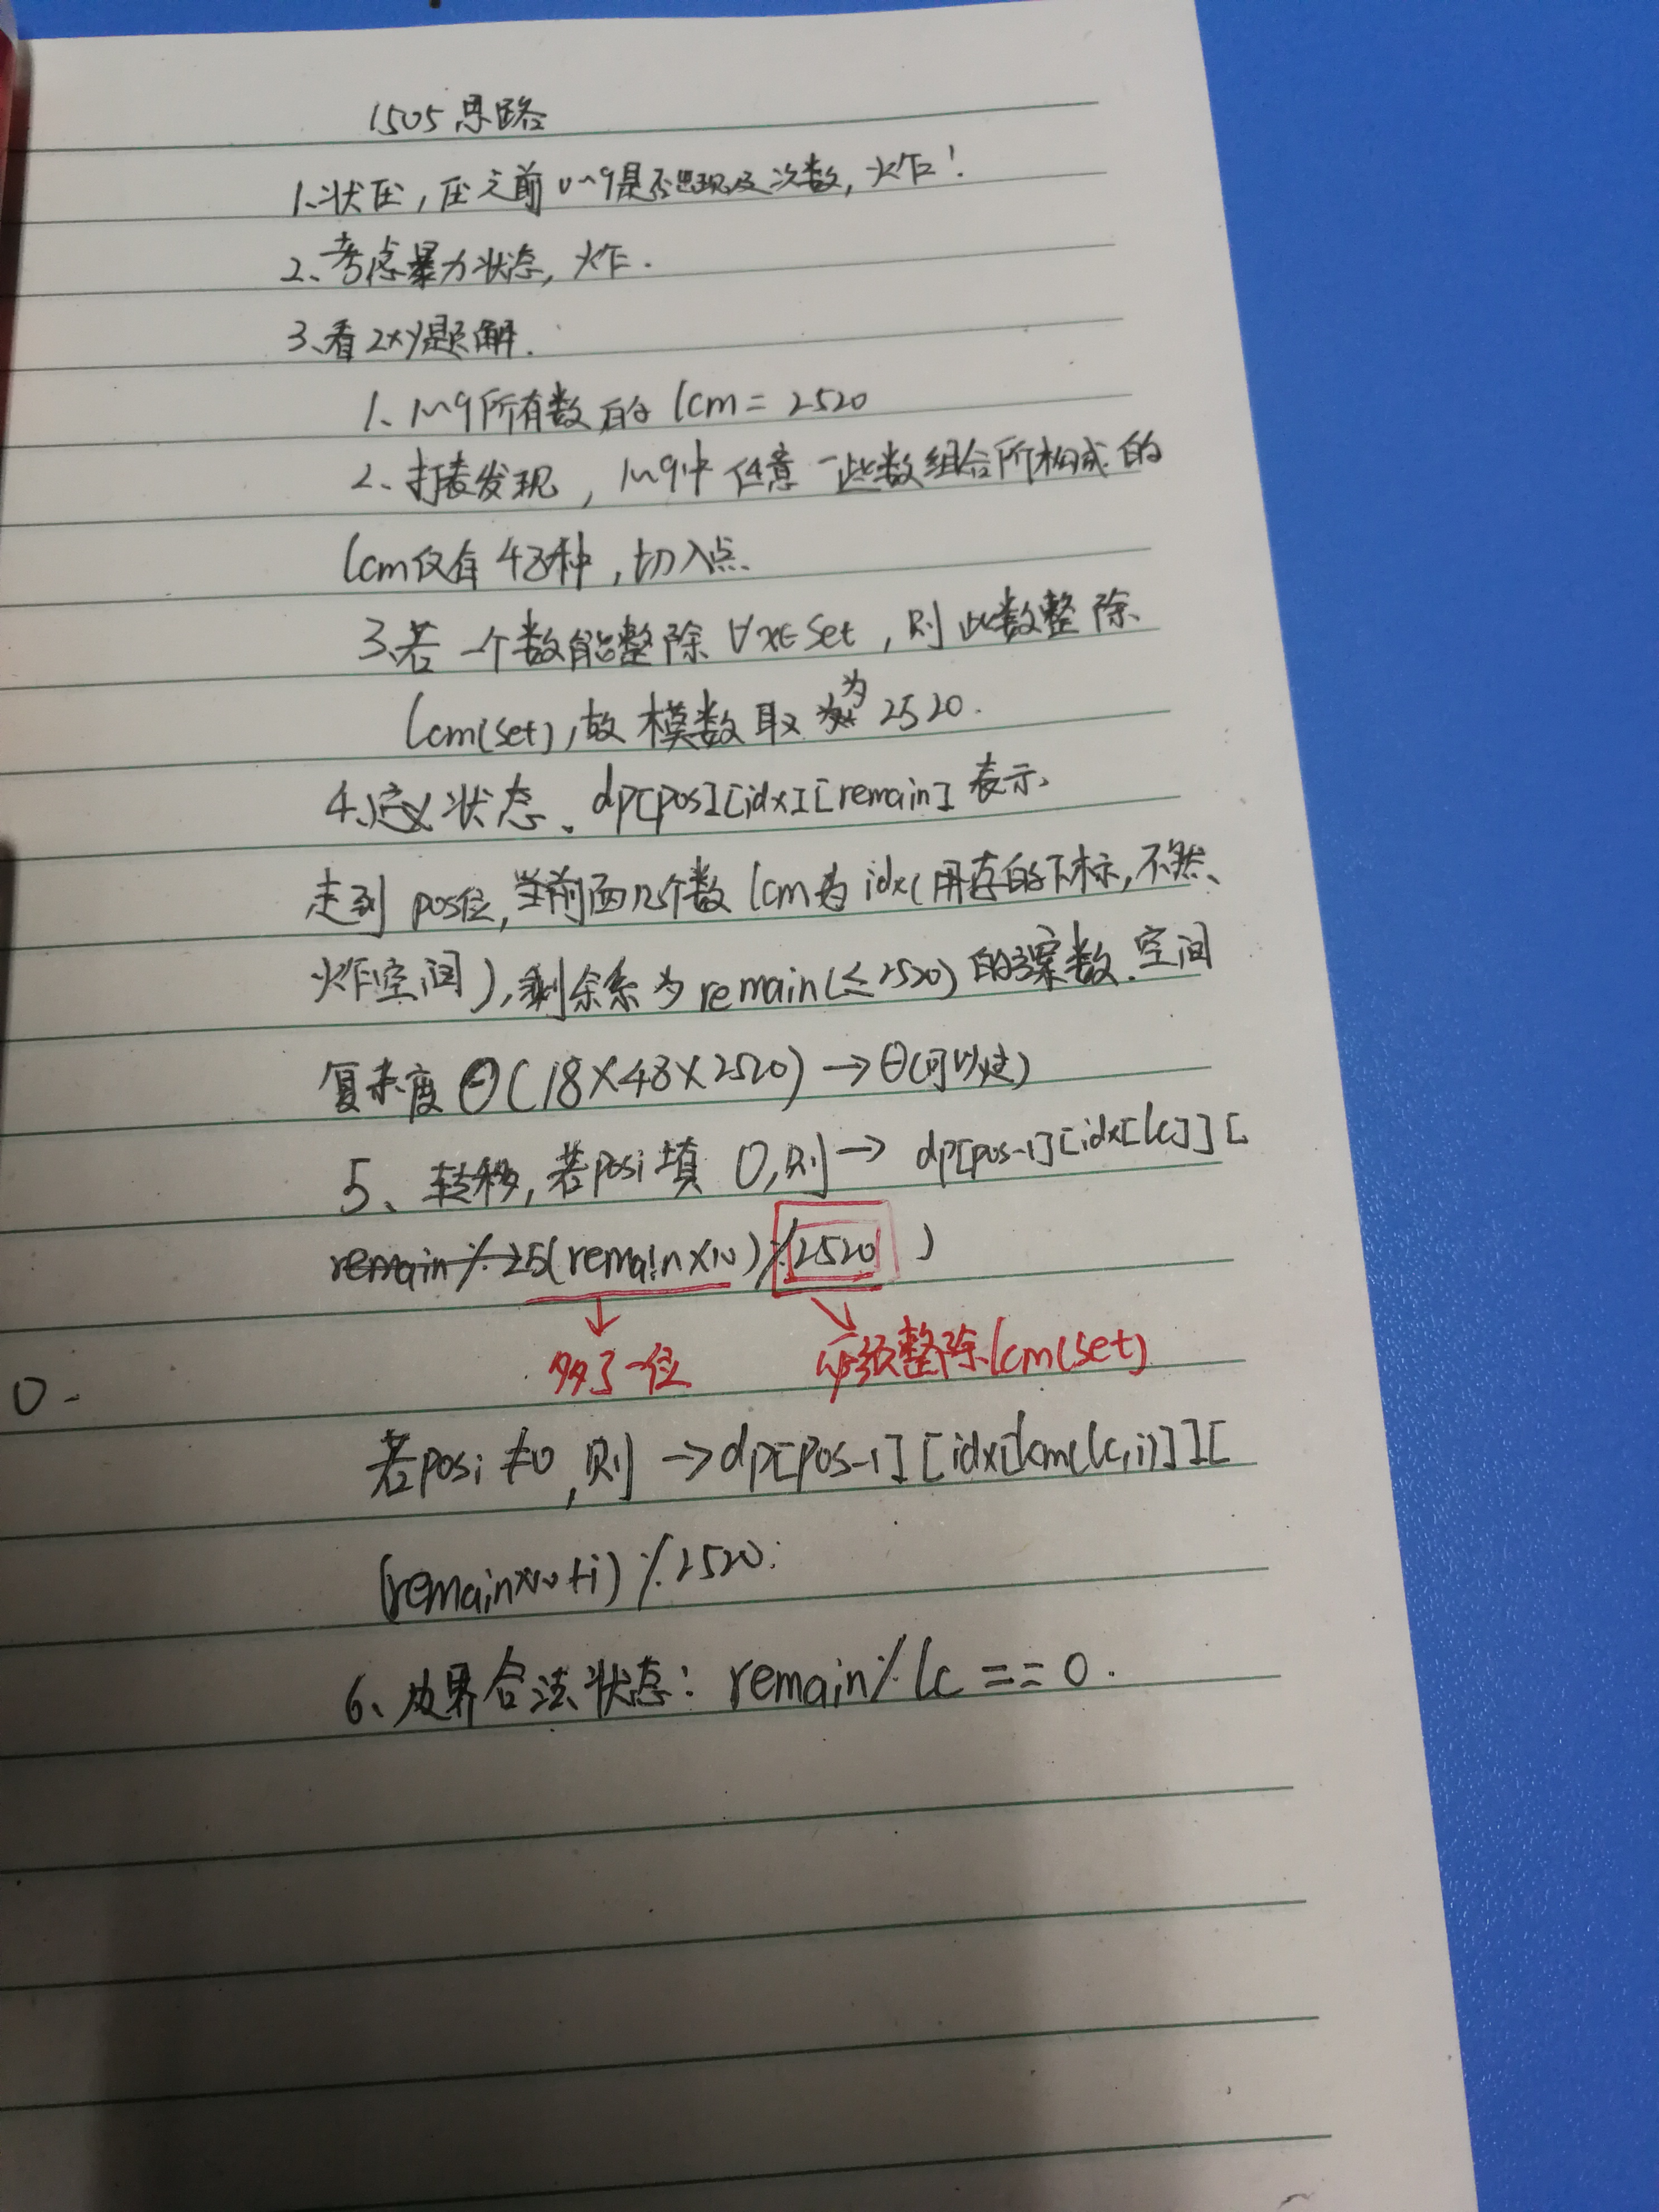 1505思路
1、状压，压之前0~9是否出现及次数，炸！
2、考虑暴力状态，炸．
3、看zxy题解．
1、1~9所有数的lcm=2520
2、打表发现，1~9中任意一些数组合所构成的
lcm仅有48种，切入点
3、若一个数能整除∀x∈Set，则此数整除
lcm(set)，故模数取为2520．
4、定义状态、dp[pos][idx][remain]表示、
走到pos位，当前面几个数lcm为idx(用存的下标，不然、
炸空间)，剩余系为remain(≤2520)的答案数．空间
复杂度Θ(18×48×2520)→Θ(可以过)
5、转移，若posi填0，则→dp[pos-1][idx[lc]][
remain%25(remain×10)%2520)
多了一位 必须整除lcm(set)
0-
若posi≠0，则→dp[pos-1][idx[lcm(lc,i)]][
(remain×10+i)%2520．
6、边界合法状态：remain%lc==0．